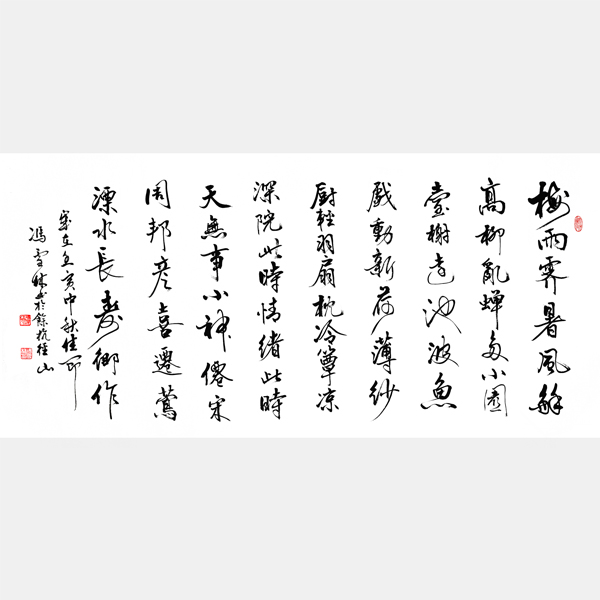 梅雨霽暑風龢
高柳亂蟬多小園
臺榭遠池波魚
戲動新荷薄紗
厨輕羽扇枕冷簟凉
深院此時情緒此時
天無事小神僊宋
周邦彦喜遷鶯
溧水長壽鄉作
歲在己亥中秋佳節
馮雪书於餘杭徑山